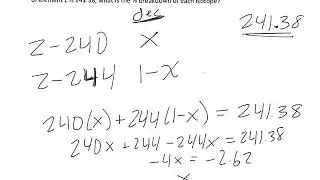 of element Z is 241.38, what is the % breakdown of each isotope?
dec
241.38
Z-240 X
Z-244 1-X
240(x)+244(1-x)=241.38
240x+244-244x=241.38
-4x=-2.62
x